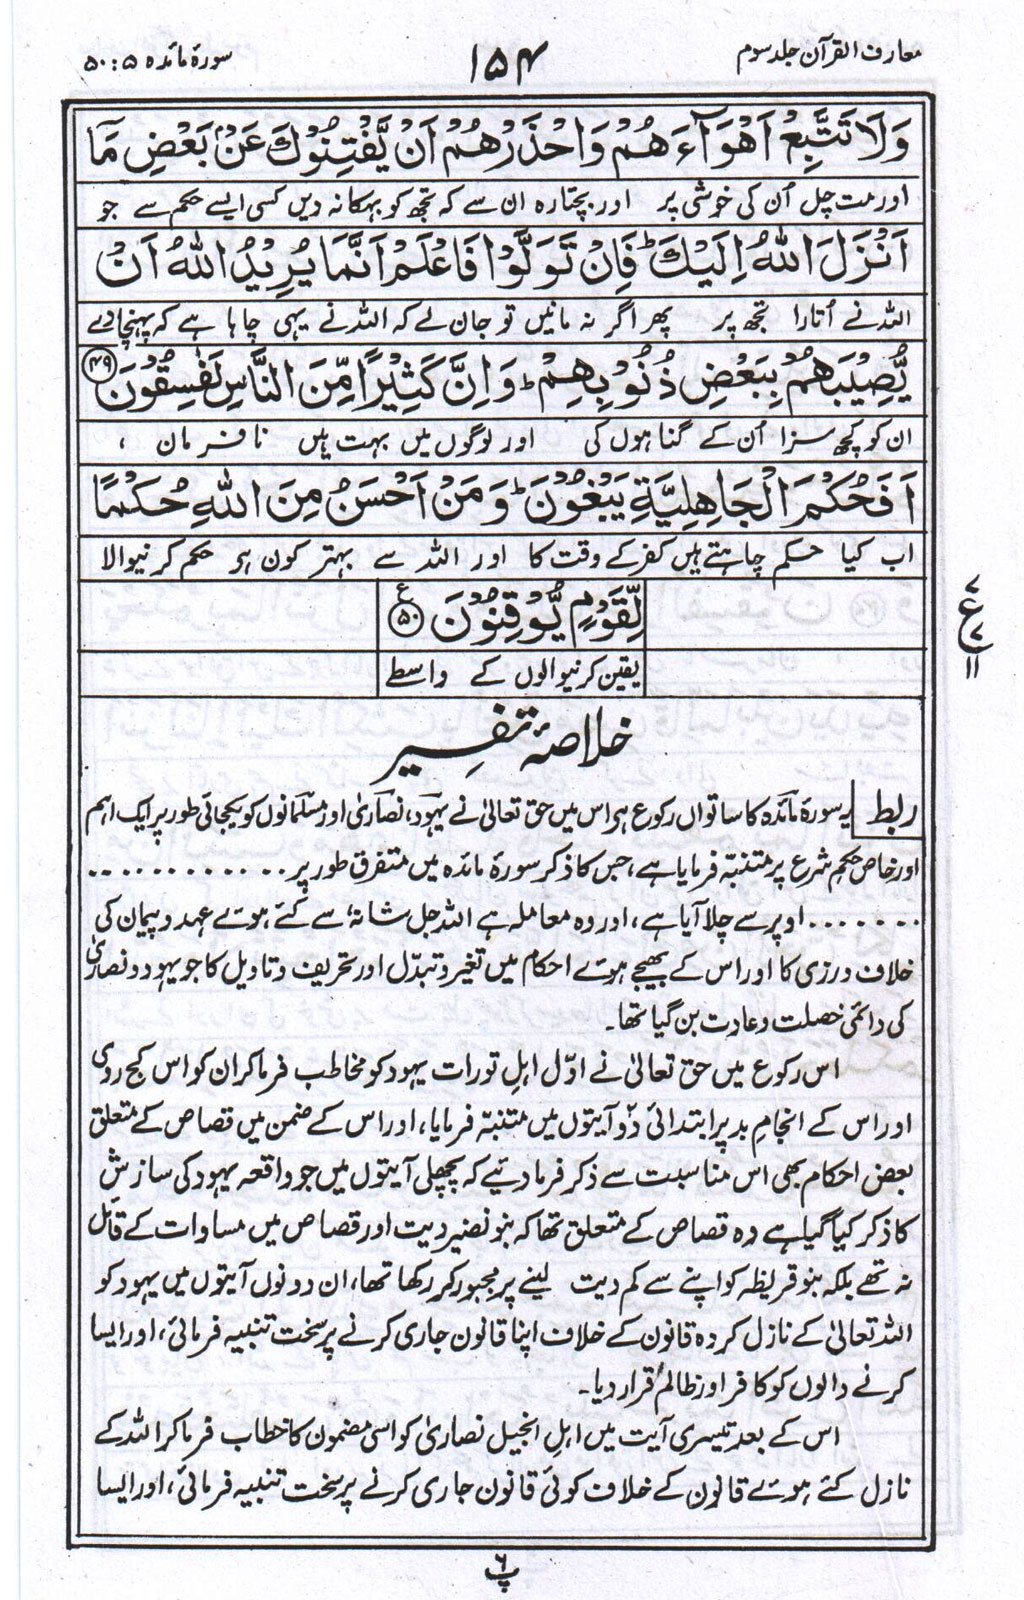 معارف القرآن جلد سوم
۱۵۴
سورۂ مائدہ ۵ : ۵۰
وَلَا تَتَّبِعْ اَهْوَآءَهُمْ وَاحْذَرْهُمْ اَنْ يَّفْتِنُوْكَ عَنْۢ بَعْضِ مَآ
اور مت چل اُن کی خوشی پر اور بچتا رہ ان سے کہ تجھ کو بہکا نہ دیں کسی ایسے حکم سے جو
اَنْزَلَ اللّٰهُ اِلَيْكَ ؕ فَاِنْ تَوَلَّوْا فَاعْلَمْ اَنَّمَا يُرِيْدُ اللّٰهُ اَنْ
اللہ نے اُتارا تجھ پر پھر اگر نہ مانیں تو جان لے کہ اللہ نے یہی چاہا ہے کہ پہنچا دے
يُّصِيْبَهُمْ بِبَعْضِ ذُنُوْبِهِمْ ؕ وَاِنَّ كَثِيْرًا مِّنَ النَّاسِ لَفٰسِقُوْنَ ﴿۴۹﴾
ان کو کچھ سزا اُن کے گناہوں کی اور لوگوں میں بہت ہیں نافرمان ،
اَفَحُكْمَ الْجَاهِلِيَّةِ يَبْغُوْنَ ؕ وَمَنْ اَحْسَنُ مِنَ اللّٰهِ حُكْمًا
اب کیا حکم چاہتے ہیں کفر کے وقت کا اور اللہ سے بہتر کون ہی حکم کرنیوالا
لِّقَوْمٍ يُّوْقِنُوْنَ ﴿۵۰﴾ ع
یقین کرنیوالوں کے واسطے
۷
ع
۷
۱۱
خلاصۂ تفسیر
ربط یہ سورۂ مائدہ کا ساتواں رکوع ہی اس میں حق تعالیٰ نے یہود، نصاریٰ اور مسلمانوں کو یکجائی طور پر ایک اہم
اور خاص حکم شرع پر متنبہ فرمایا ہے، جس کا ذکر سورۂ مائدہ میں متفرق طور پر . . . . . . . . . . . .
. . . . . . . اوپر سے چلا آیا ہے، اور وہ معاملہ ہے اللہ جل شانہٗ سے کئے ہوئے عہد و پیمان کی
خلاف ورزی کا اور اس کے بھیجے ہوئے احکام میں تغیر و تبدّل اور تحریف و تاویل کا جو یہود و نصاریٰ
کی دائمی خصلت و عادت بن گیا تھا۔
اس رکوع میں حق تعالیٰ نے اوّل اہل تورات یہود کو مخاطب فرما کر ان کو اس کج روی
اور اس کے انجامِ بد پر ابتدائی دو آیتوں میں متنبّہ فرمایا، اور اس کے ضمن میں قصاص کے متعلق
بعض احکام بھی اس مناسبت سے ذکر فرما دئیے کہ پچھلی آیتوں میں جو واقعہ یہود کی سازش
کا ذکر کیا گیا ہے وہ قصاص کے متعلق تھا کہ بنو نضیر دیت اور قصاص میں مساوات کے قائل
نہ تھے بلکہ بنو قریظہ کو اپنے سے کم دیت لینے پر مجبور کر رکھا تھا، ان دونوں آیتوں میں یہود کو
اللہ تعالیٰ کے نازل کردہ قانون کے خلاف اپنا قانون جاری کرنے پر سخت تنبیہ فرمائی، اور ایسا
کرنے والوں کو کافر اور ظالم قرار دیا۔
اس کے بعد تیسری آیت میں اہلِ انجیل نصاریٰ کو اسی مضمون کا خطاب فرما کر اللہ کے
نازل کئے ہوئے قانون کے خلاف کوئی قانون جاری کرنے پر سخت تنبیہ فرمائی، اور ایسا
پ ۶